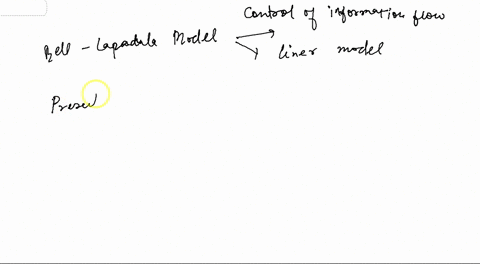 Control of information flow
Bell - Lapadula Model
liner model
Presen